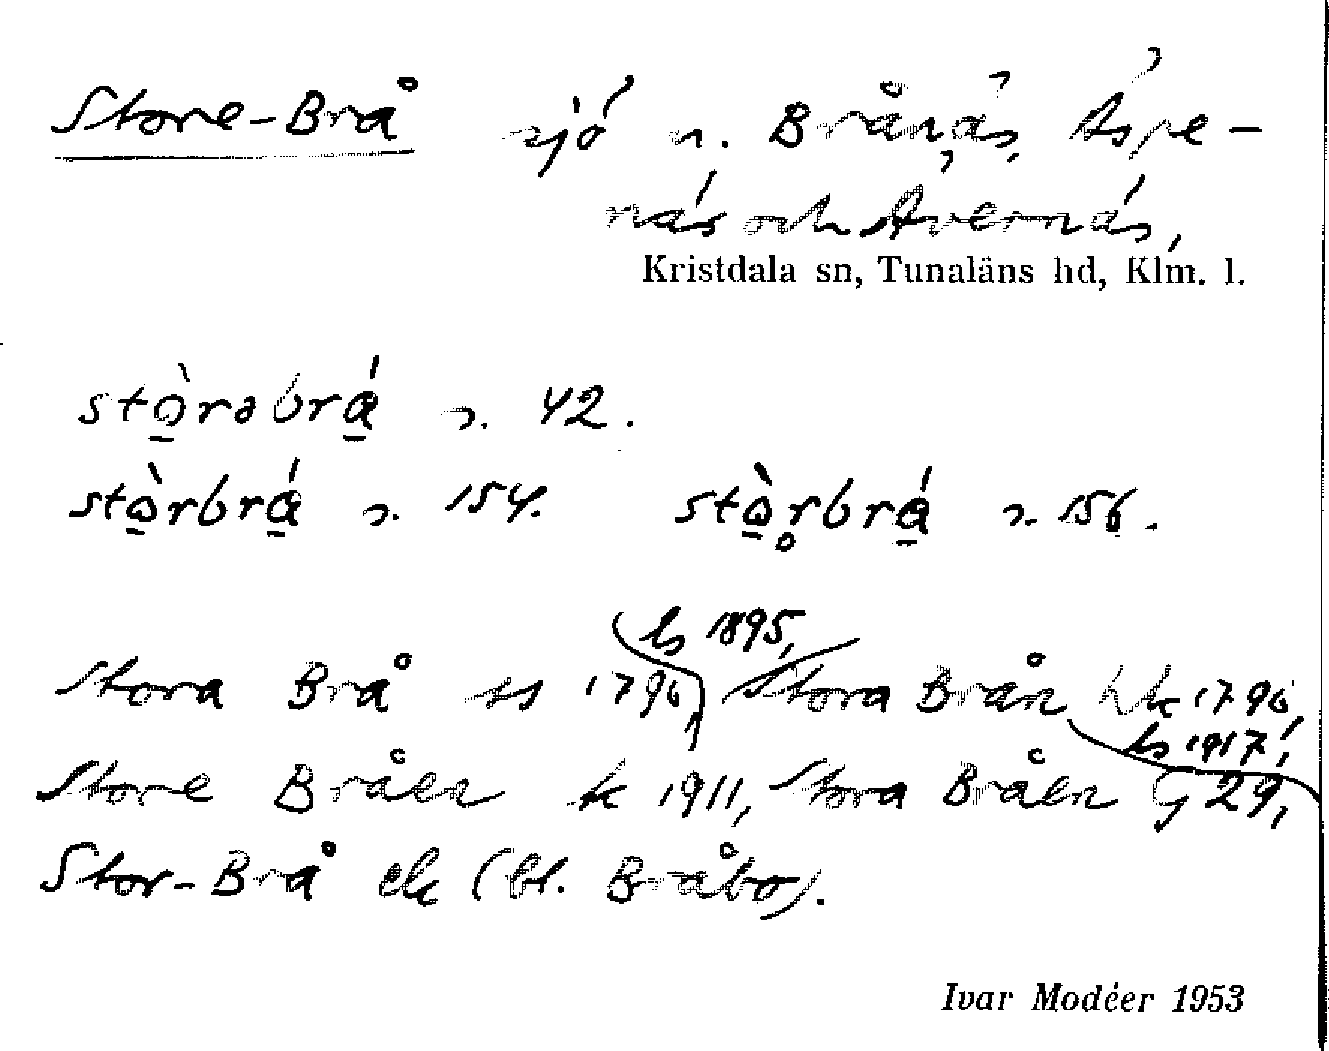 Store-Brå sjö n. Brånäs, Äspe-
näs och Avernäs,
Kristdala sn, Tunaläns hd, Klm. l.
stò̱rəbrá̱ s. 42.
stò̱rbrá̱ s. 154. stò̱r̥brá̱ s. 156.
ls 1895,
Stora Brå ss 1796, Stora Brån hk 1796,
ls 1917,
Store Bråen k 1911, Stora Bråen G 29,
Stor-Brå ek (bl. Bråbo).
Ivar Modéer 1953